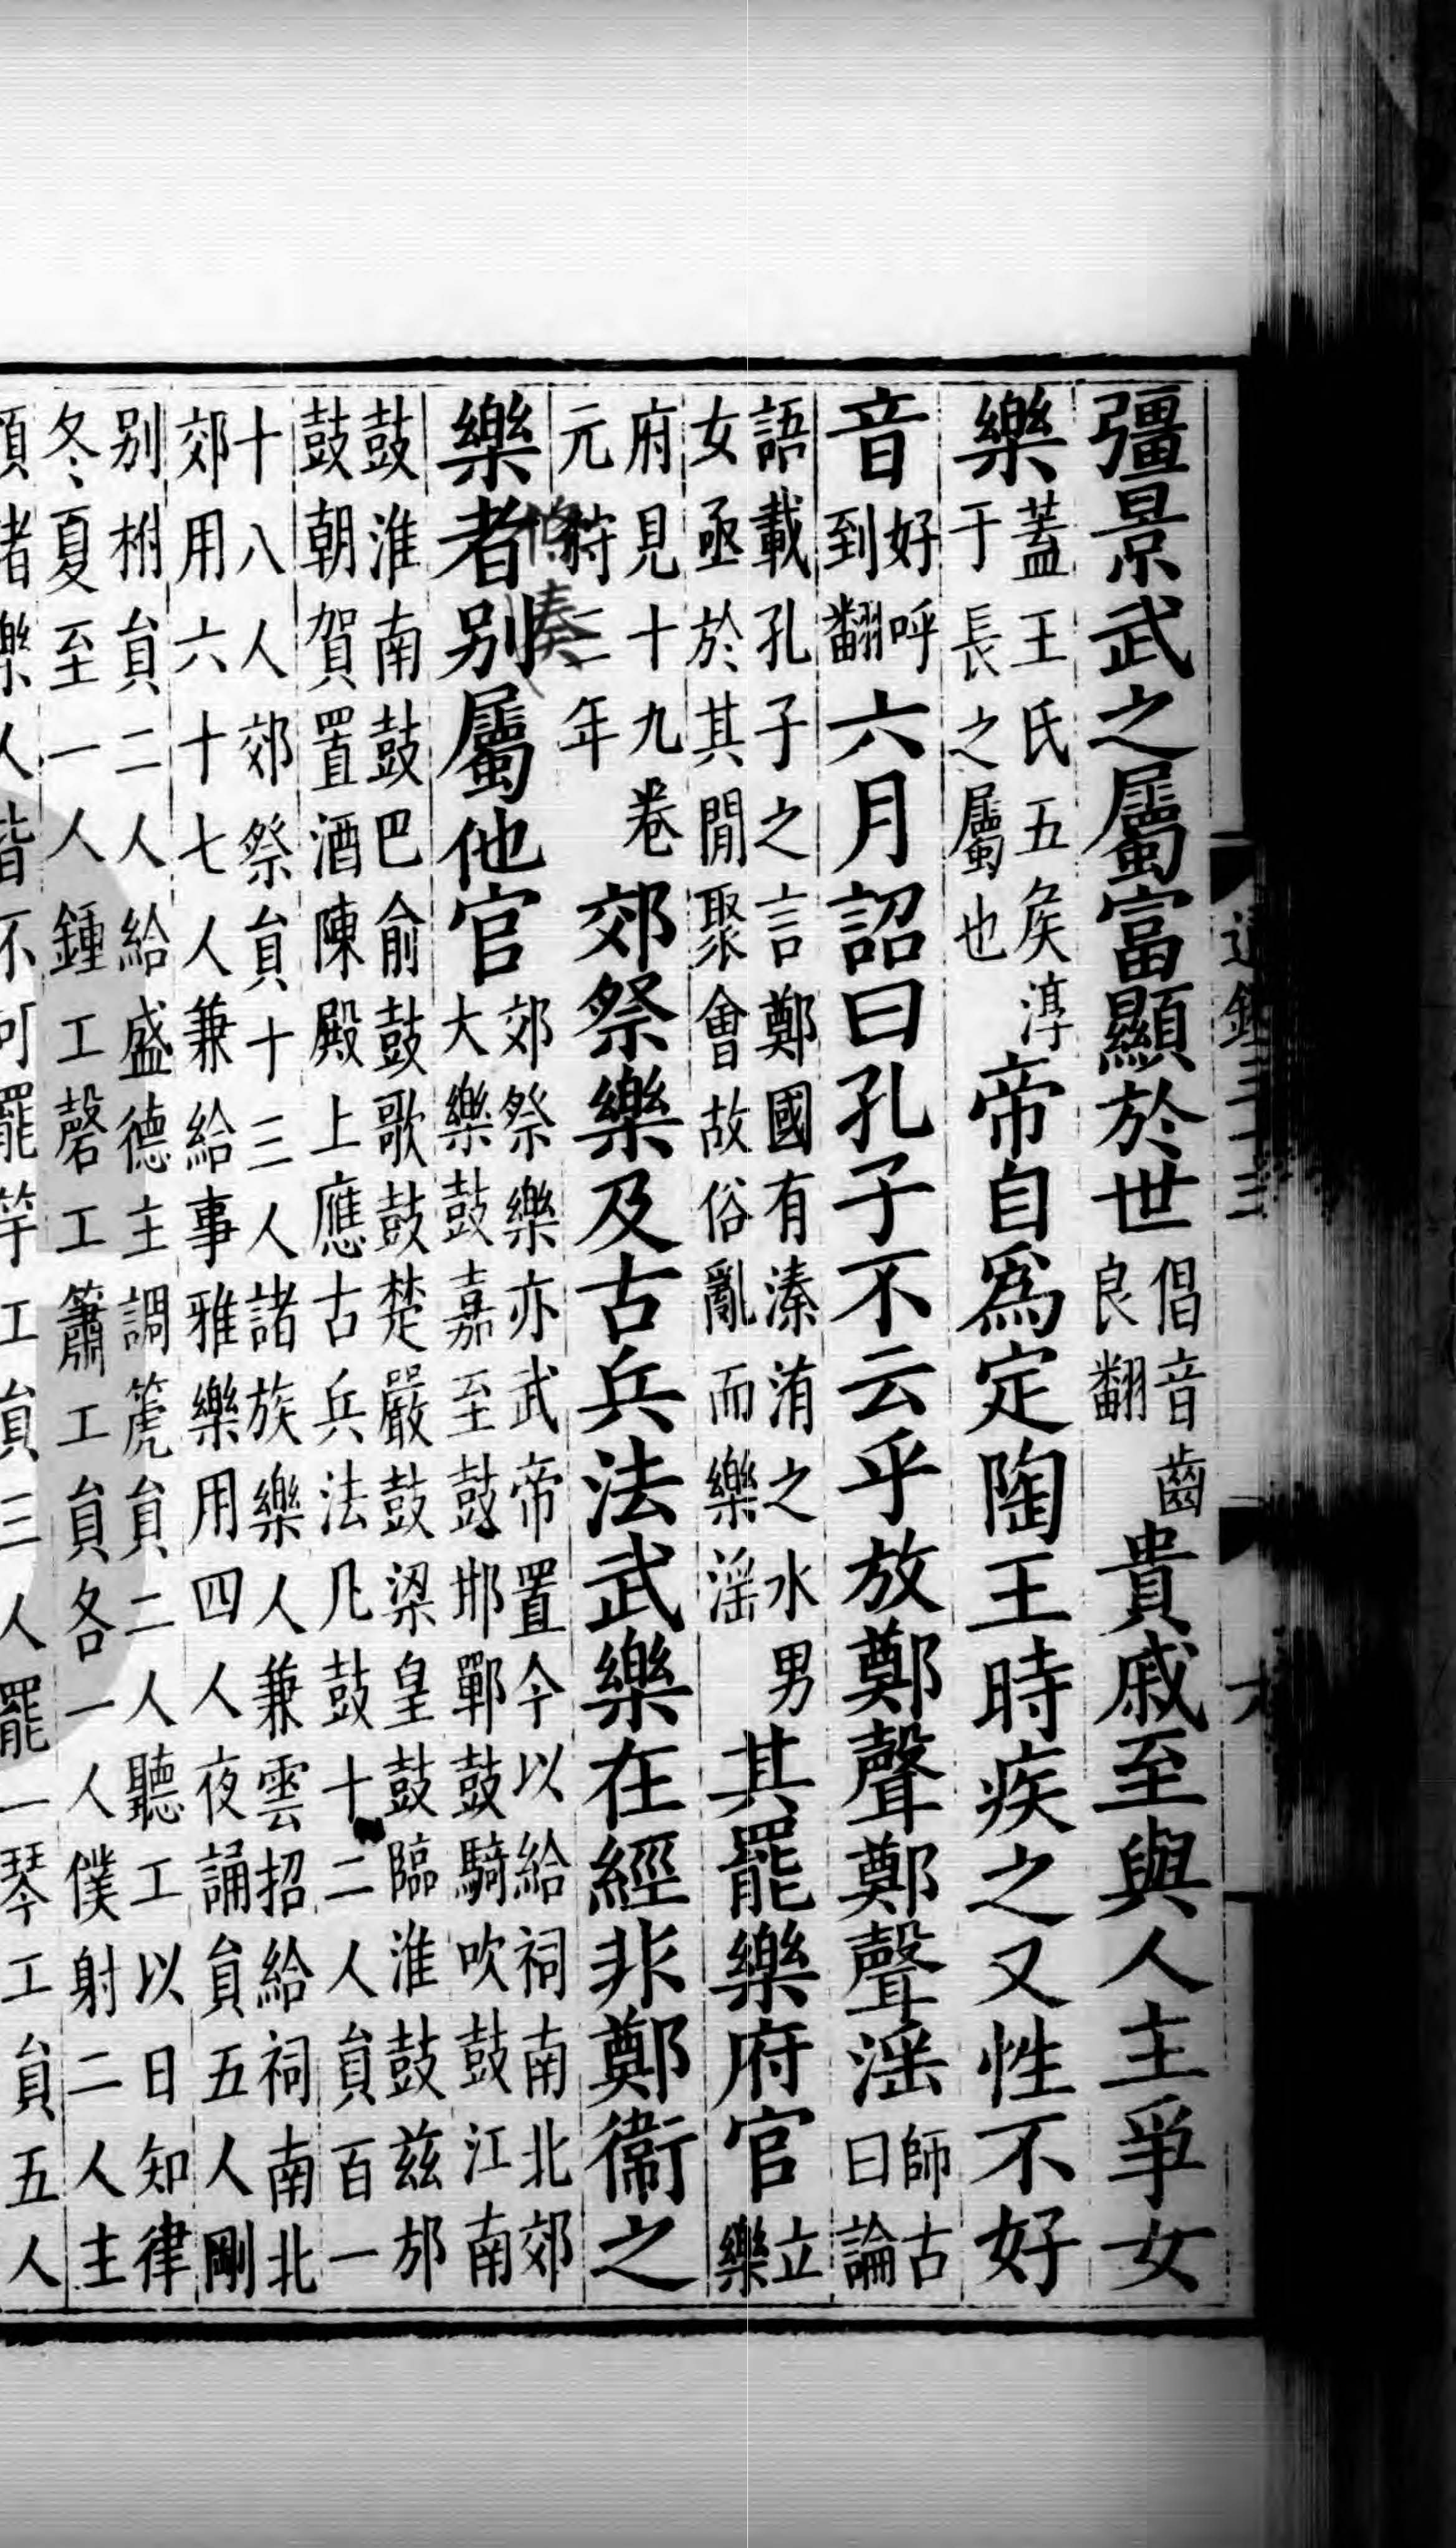 彊景武之屬富顯於世倡音齒良翻貴戚至與人主爭女
樂蓋王氏五矦淳于長之屬也帝自爲定陶王時疾之又性不好
音好呼到翻六月詔曰孔子不云乎放鄭聲鄭聲淫師古曰論
語載孔子之言鄭國有溱洧之水男女亟於其閒聚會故俗亂而樂淫其罷樂府官立樂
府見十九卷元狩三年郊祭樂及古兵法武樂在經非鄭衞之
條奏
樂者別屬他官郊祭樂亦武帝置今以給祠南北郊大樂鼓嘉至鼓邯鄲鼓騎吹鼓江南
鼓淮南鼓巴俞鼓歌鼓楚嚴鼓梁皇鼓臨淮鼓兹邡鼓朝賀置酒陳殿上應古兵法凡鼓十二人貟百一
十八人郊祭貟十三人諸族樂人兼雲招給祠南北郊用六十七人兼給事雅樂用四人夜誦貟五人剛
别柎貟二人給盛德主調箎貟二人聽工以日知律冬夏至一人鍾工磬工簫工貟各一人僕射二人主
領諸樂人皆不可罷竽工貟三人罷一琴工貟五人
通鑑三十三